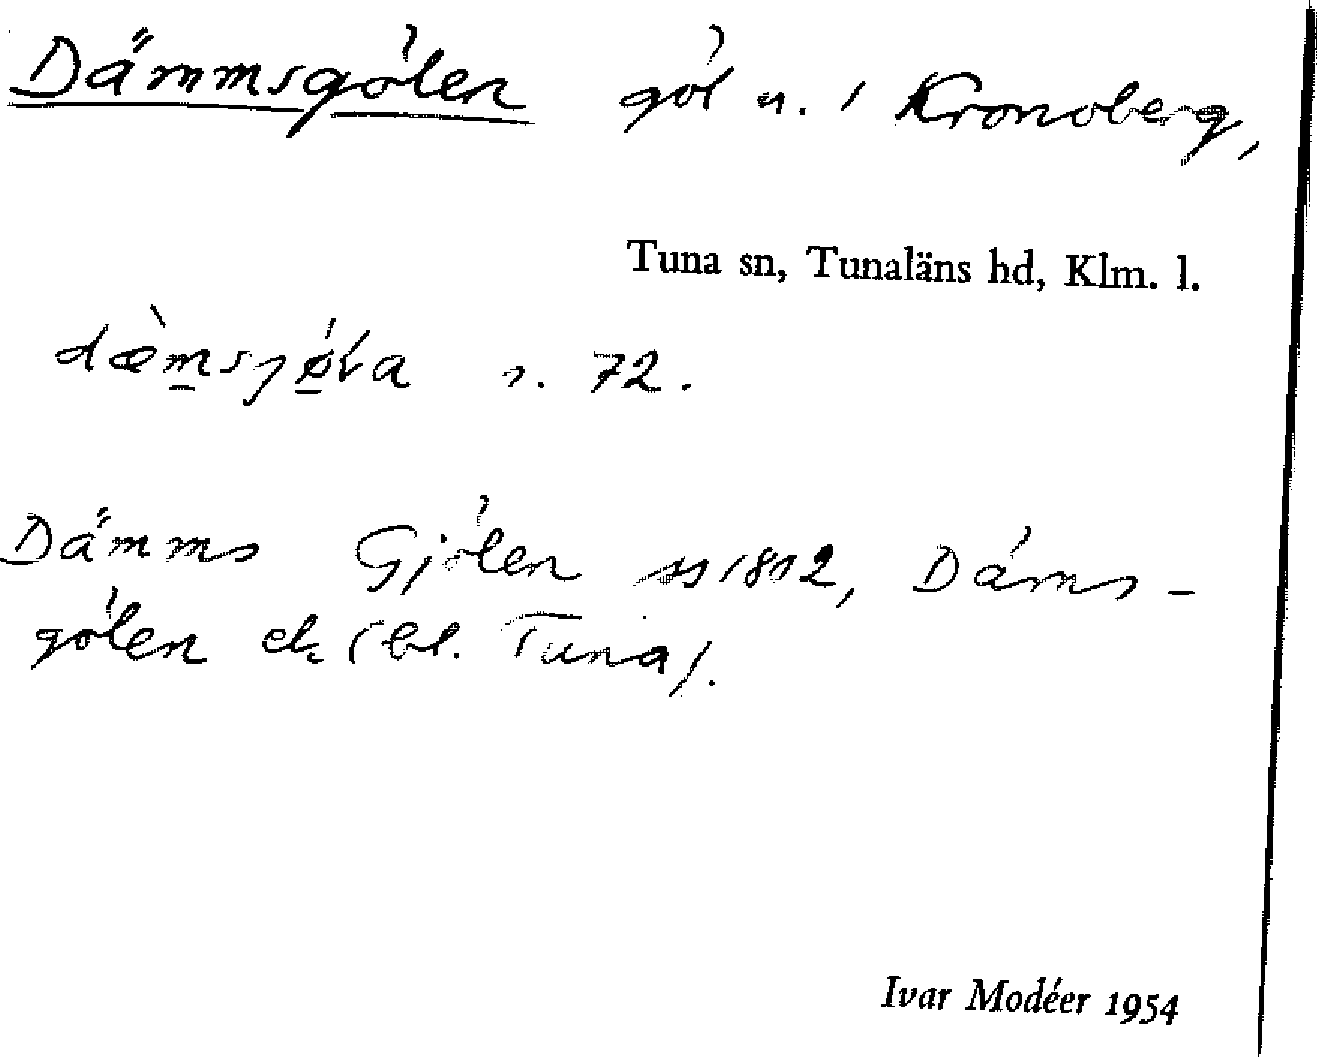 Dämmsgölen göl n. / Kronoberg,
Tuna sn, Tunaläns hd, Klm. l.
dæ̀msjøla s. 72.
Dämms Gjölen ss 1802, Däms-
gölen ek (bl. Tuna).
Ivar Modéer 1954